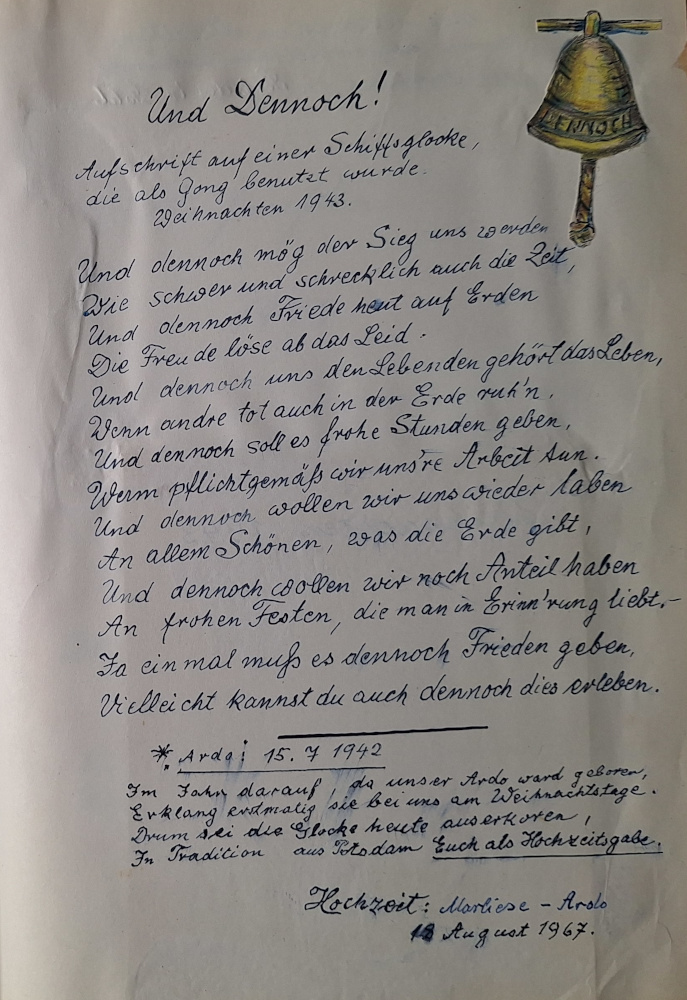 Und Dennoch!
DENNOCH
Aufschrift auf einer Schiffsglocke,
die als Gong benutzt wurde.
Weihnachten 1943.
Und dennoch mög der Sieg uns werden
Wie schwer und schrecklich auch die Zeit,
Und dennoch Friede heut auf Erden
Die Freude löse ab das Leid.
Und dennoch uns den Lebenden gehört das Leben,
Wenn andre tot auch in der Erde ruh'n,
Und dennoch soll es frohe Stunden geben,
Wenn pflichtgemäß wir uns're Arbeit tun.
Und dennoch wollen wir uns wieder laben
An allem Schönen, was die Erde gibt,
Und dennoch wollen wir noch Anteil haben
An frohen Festen, die man in Erinn'rung liebt.-
Ja einmal muß es dennoch Frieden geben,
Vielleicht kannst du auch dennoch dies erleben.
*. Ardo: 15. 7 1942
Im Jahr darauf, da unser Ardo ward geboren,
Erklang erstmalig sie bei uns am Weihnachtstage.
Drum sei die Glocke heute auserkoren,
In Tradition aus Potsdam Euch als Hochzeitsgabe.
Hochzeit: Marliese - Ardo
18 August 1967.